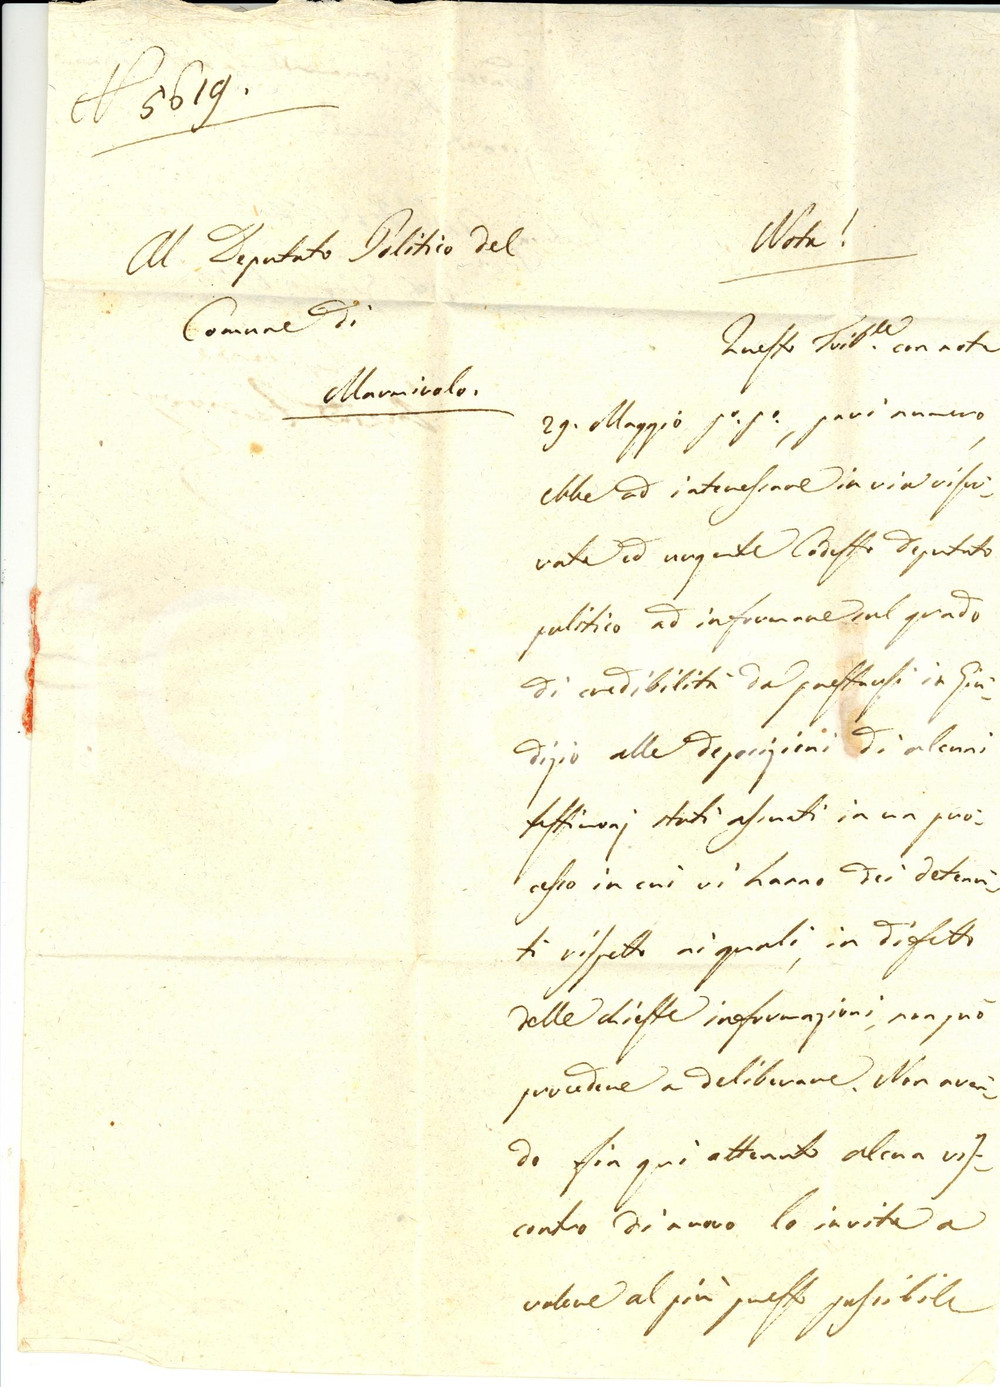 N 5619.
Al Deputato Politico del
Comune di
Marmirolo.
Nota!
Questo Trib.le con nota
29. Maggio p.o p.o, pari numero,
ebbe ad interessare in via riser-
vata ed urgente Codesto Deputato
politico ad informare sul grado
di credibilità da prestarsi in Giu-
dizio alle deposizioni di alcuni
testimonj stati assunti in un pro-
cesso in cui vi hanno dei detenu-
ti rispetto ai quali, in difetto
delle chieste informazioni, non può
procedere a deliberare. Non aven-
do fin qui ottenuto alcun ris-
contro di nuovo lo invita a
volere al più presto possibile